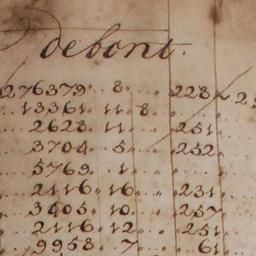 debont.
276379 " 8 " " 228
13361 " 11 " 8 "
2628 " 11 " " 251
3704 " 5 " " 252
5769 " 1 "
2116 " 16 " " 231
3405 " 10 " " 257
2116 " 12 " " 251
9958 " 7 " " 61